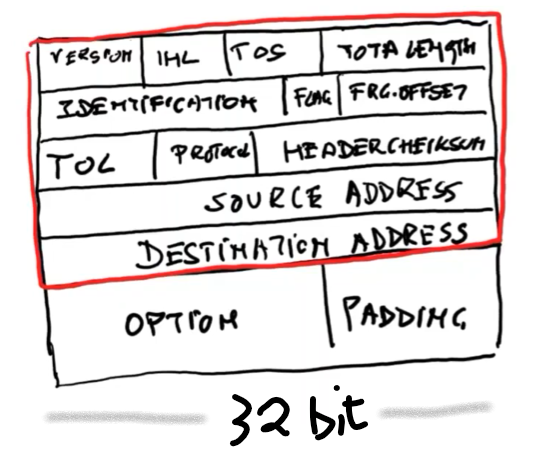 VERSION IHL TOS TOTA LENGTH
IDENTIFICATION FLAG FRG.OFFSET
TOL PROTOCOL HEADERCHECKSUM
SOURCE ADDRESS
DESTINATION ADDRESS
OPTION PADDING
32 bit